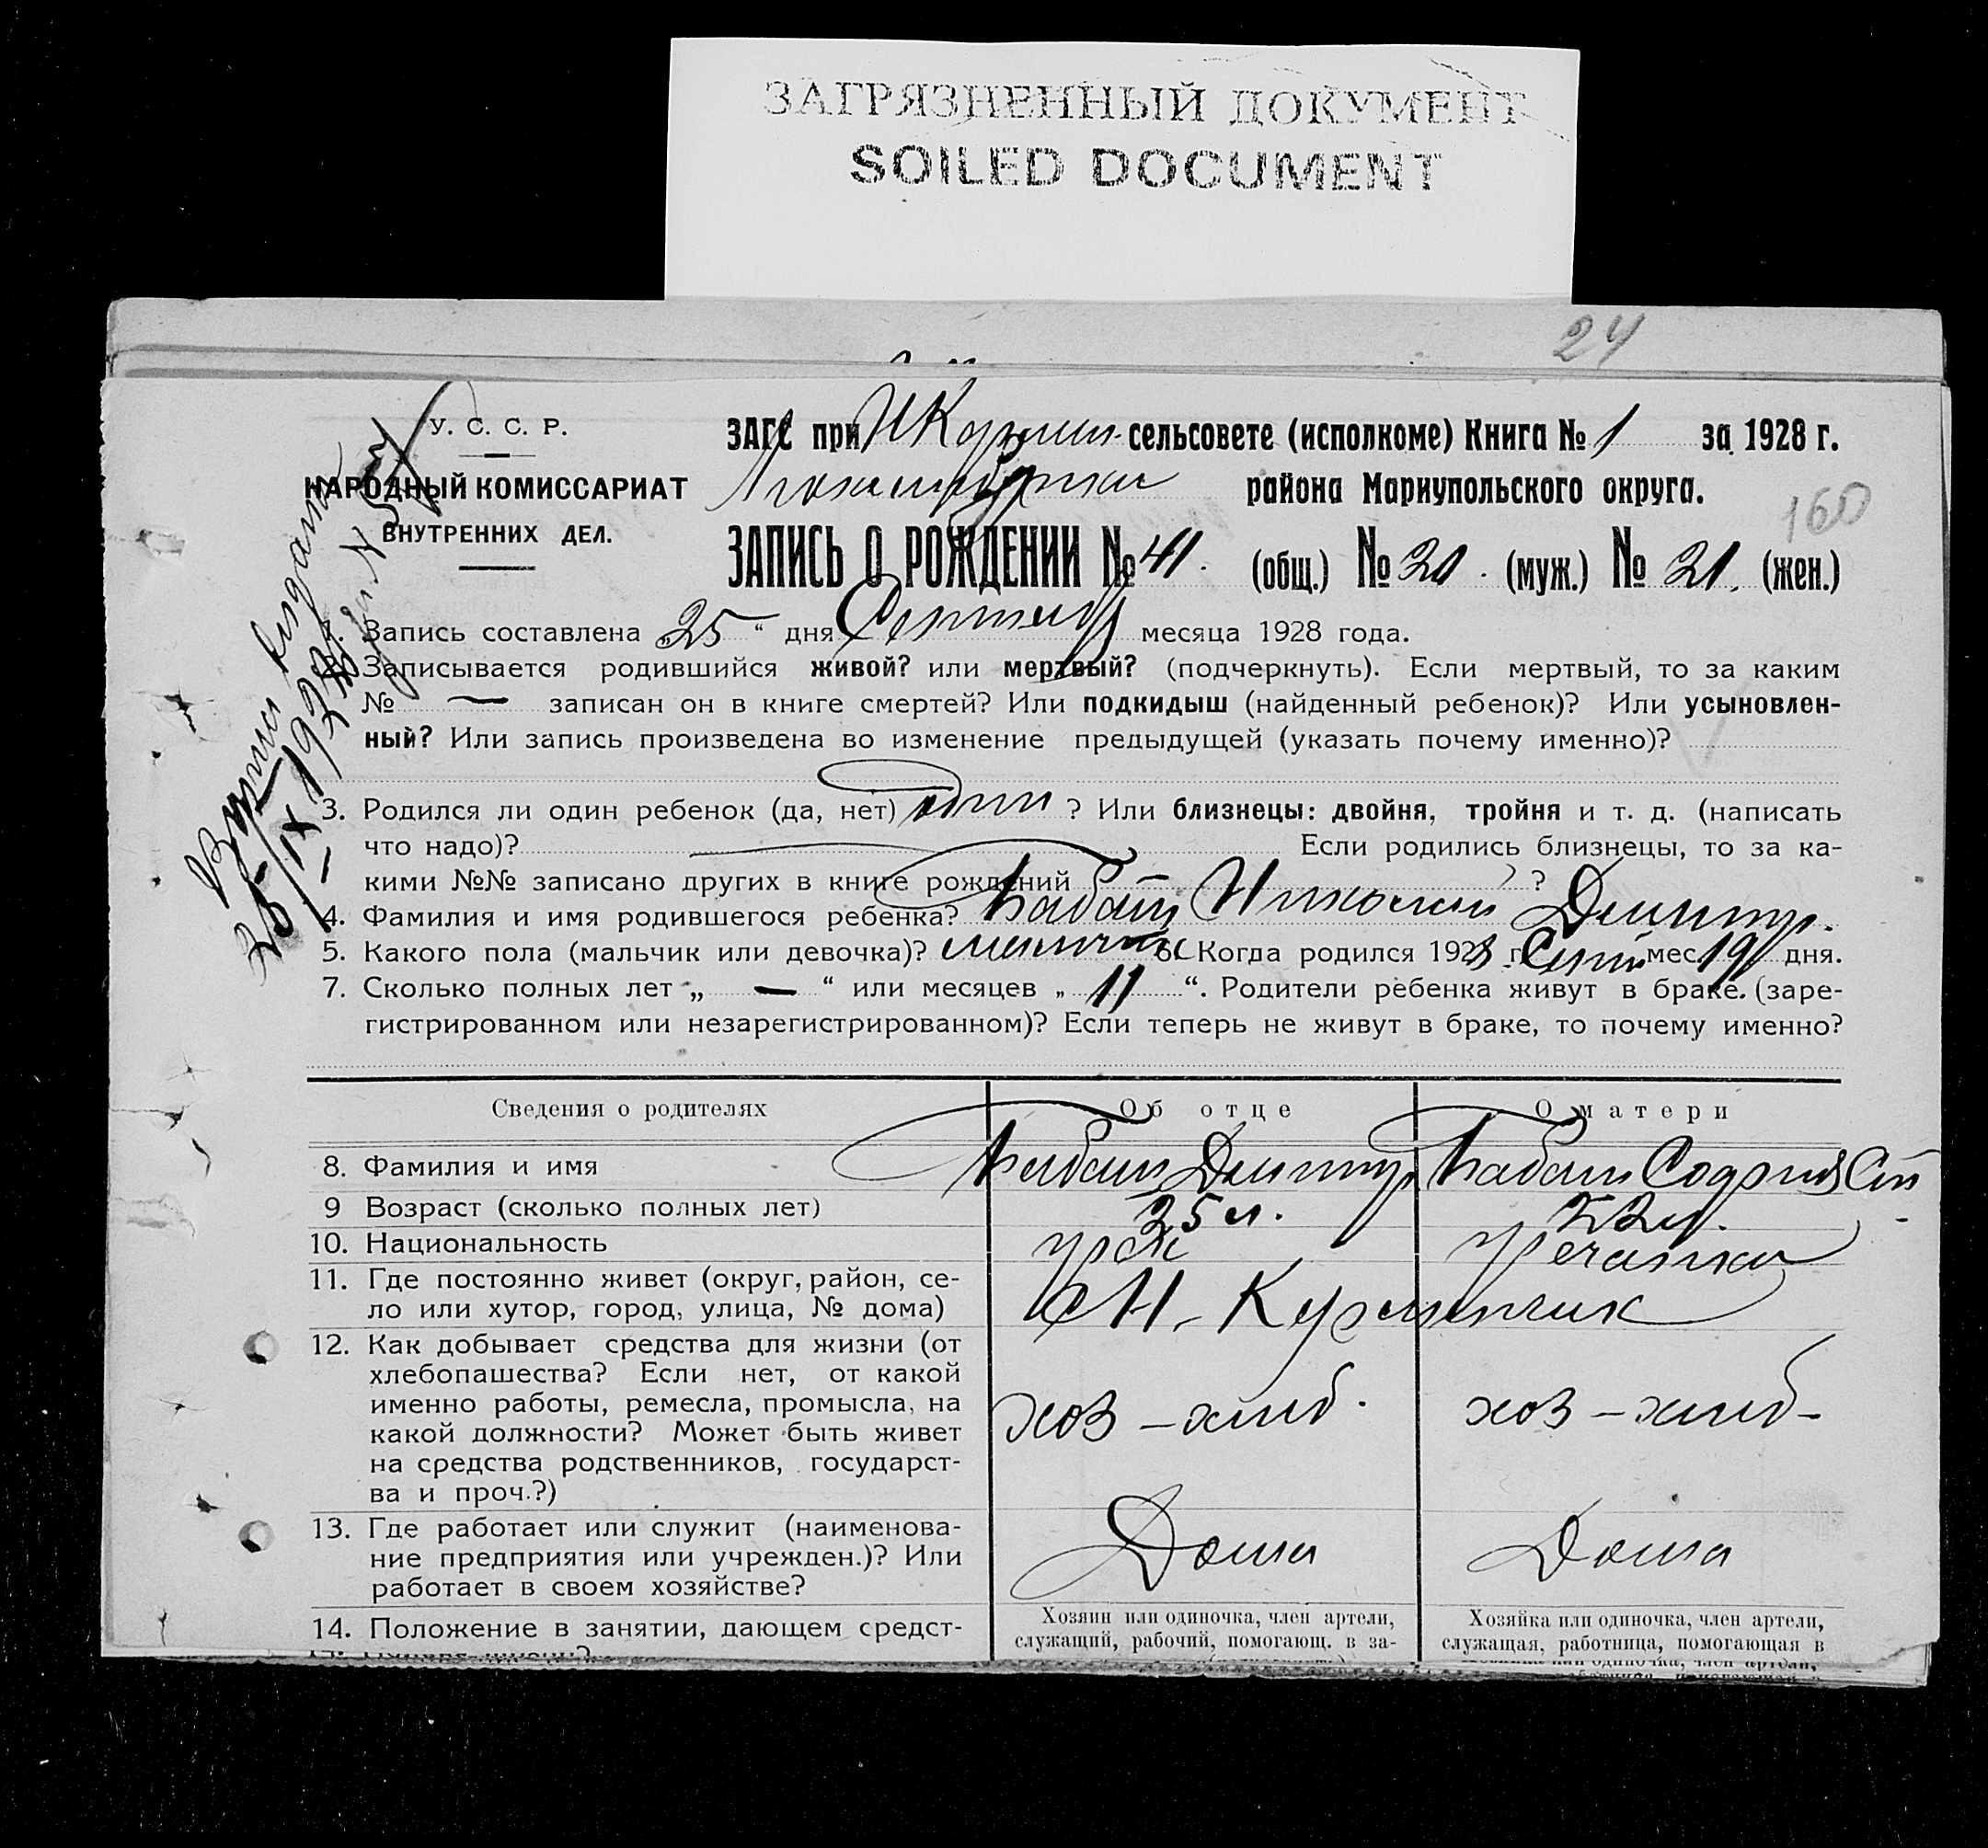 ЗАГРЯЗНЕННЫЙ ДОКУМЕНТ
SOILED DOCUMENT
24
У. С. С. Р.
НАРОДНЫЙ КОМИССАРИАТ
ВНУТРЕННИХ ДЕЛ.
ЗАГС при сельсовете (исполкоме) Книга № 1 за 1928 г.
района Мариупольского округа.
160
ЗАПИСЬ О РОЖДЕНИИ № 41. (общ.) № 20. (муж.) № 21. (жен.)
1. Запись составлена „25“ дня месяца 1928 года.
2. Записывается родившийся живой? или мертвый? (подчеркнуть). Если мертвый, то за каким
№ — записан он в книге смертей? Или подкидыш (найденный ребенок)? Или усыновлен-
ный? Или запись произведена во изменение предыдущей (указать почему именно)?
3. Родился ли один ребенок (да, нет) один ? Или близнецы: двойня, тройня и т. д. (написать
что надо)? Если родились близнецы, то за ка-
кими №№ записано других в книге рождений ?
4. Фамилия и имя родившегося ребенка? Николай Дмитр.
5. Какого пола (мальчик или девочка)? мальчик 6. Когда родился 1928 г. Сент. мес. 19 дня.
7. Сколько полных лет „ — “ или месяцев „ 11 “. Родители ребенка живут в браке (заре-
гистрированном или незарегистрированном)? Если теперь не живут в браке, то почему именно?
Сведения о родителях Об отце О матери
8. Фамилия и имя
9 Возраст (сколько полных лет) 25 л. 22 л.
10. Национальность грек гречанка
11. Где постоянно живет (округ, район, се-
ло или хутор, город, улица, № дома) Н-Курманчик
12. Как добывает средства для жизни (от
хлебопашества? Если нет, от какой
именно работы, ремесла, промысла, на
какой должности? Может быть живет
на средства родственников, государст-
ва и проч.?)
хоз - хлиб. хоз - хлиб-
13. Где работает или служит (наименова-
ние предприятия или учрежден.)? Или
работает в своем хозяйстве?
Дома Дома
14. Положение в занятии, дающем средст-
Хозяин или одиночка, член артели,
служащий, рабочий, помогающ. в за-
Хозяйка или одиночка, член артели,
служащая, работница, помогающая в
25/IX 1928